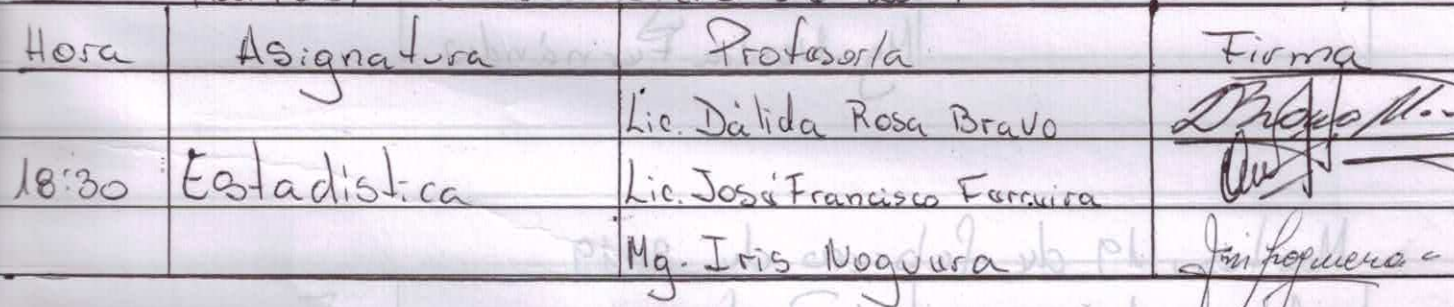 Hora Asignatura Profesor/a Firma
Lic. Dálida Rosa Bravo
18:30 Estadística Lic. José Francisco Ferreira
Mg. Iris Noguera